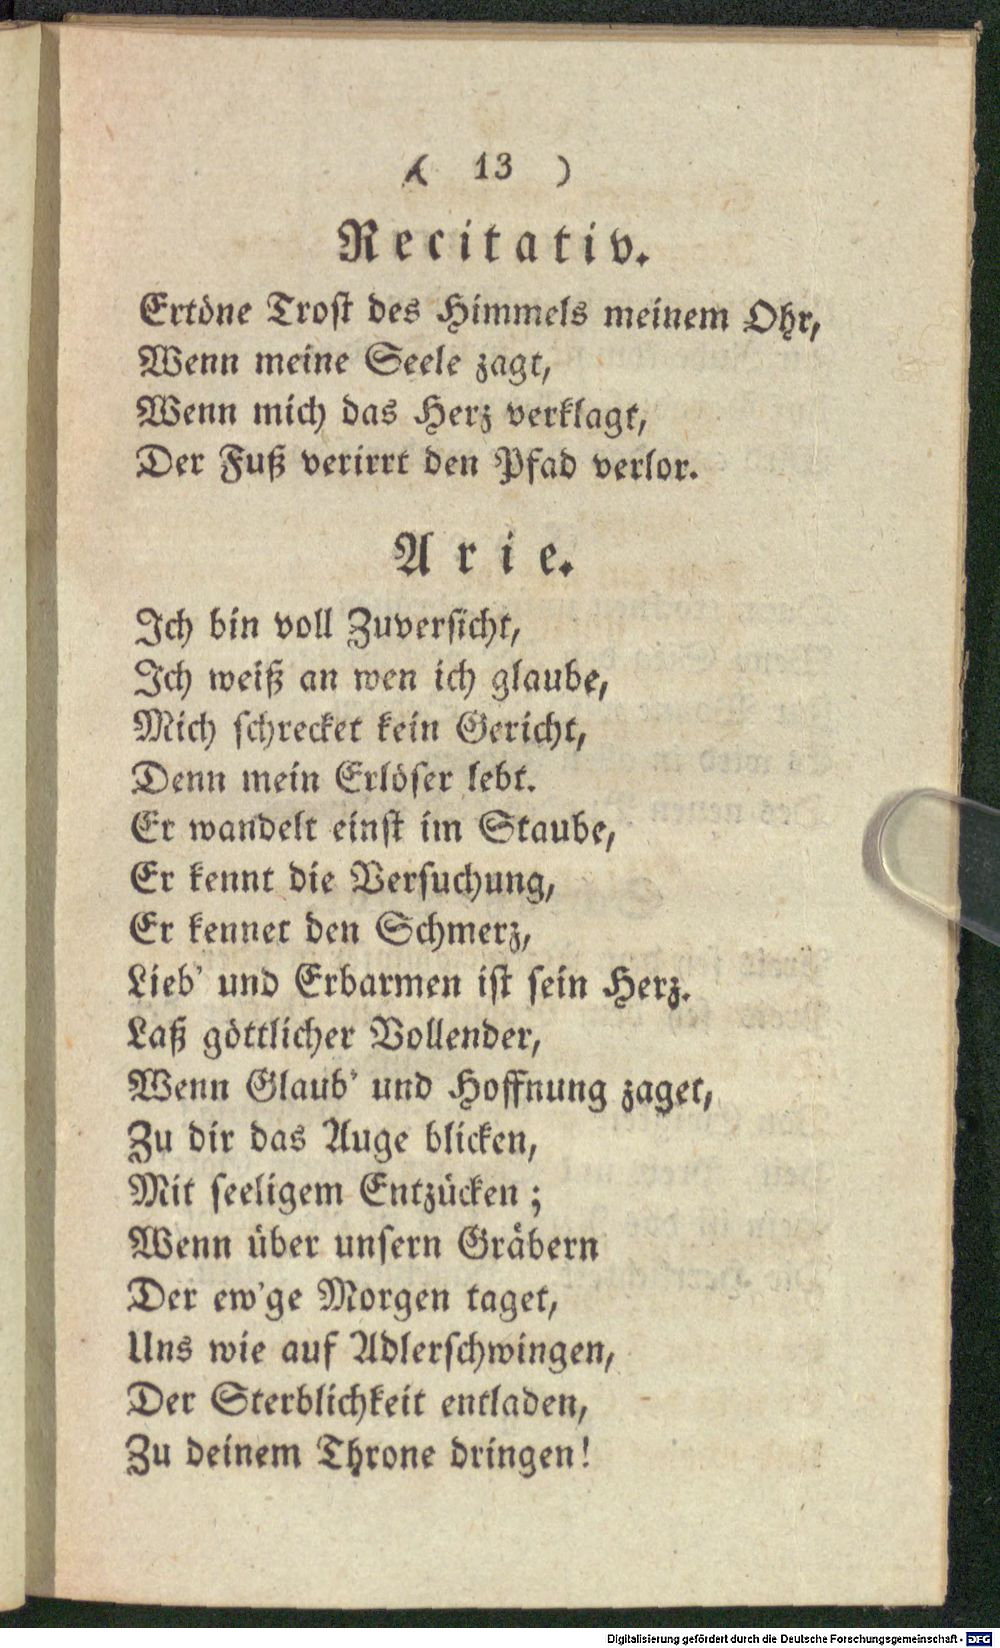 ( 13 )
Recitativ.
Ertöne Trost des Himmels meinem Ohr,
Wenn meine Seele zagt,
Wenn mich das Herz verklagt,
Der Fuß verirrt den Pfad verlor.
Arie.
Ich bin voll Zuversicht,
Ich weiß an wen ich glaube,
Mich schrecket kein Gericht,
Denn mein Erlöser lebt.
Er wandelt einst im Staube,
Er kennt die Versuchung,
Er kennet den Schmerz,
Lieb' und Erbarmen ist sein Herz.
Laß göttlicher Vollender,
Wenn Glaub' und Hoffnung zaget,
Zu dir das Auge blicken,
Mit seeligem Entzücken;
Wenn über unsern Gräbern
Der ew'ge Morgen taget,
Uns wie auf Adlerschwingen,
Der Sterblichkeit entladen,
Zu deinem Throne dringen!
Digitalisierung gefördert durch die Deutsche Forschungsgemeinschaft - DFG